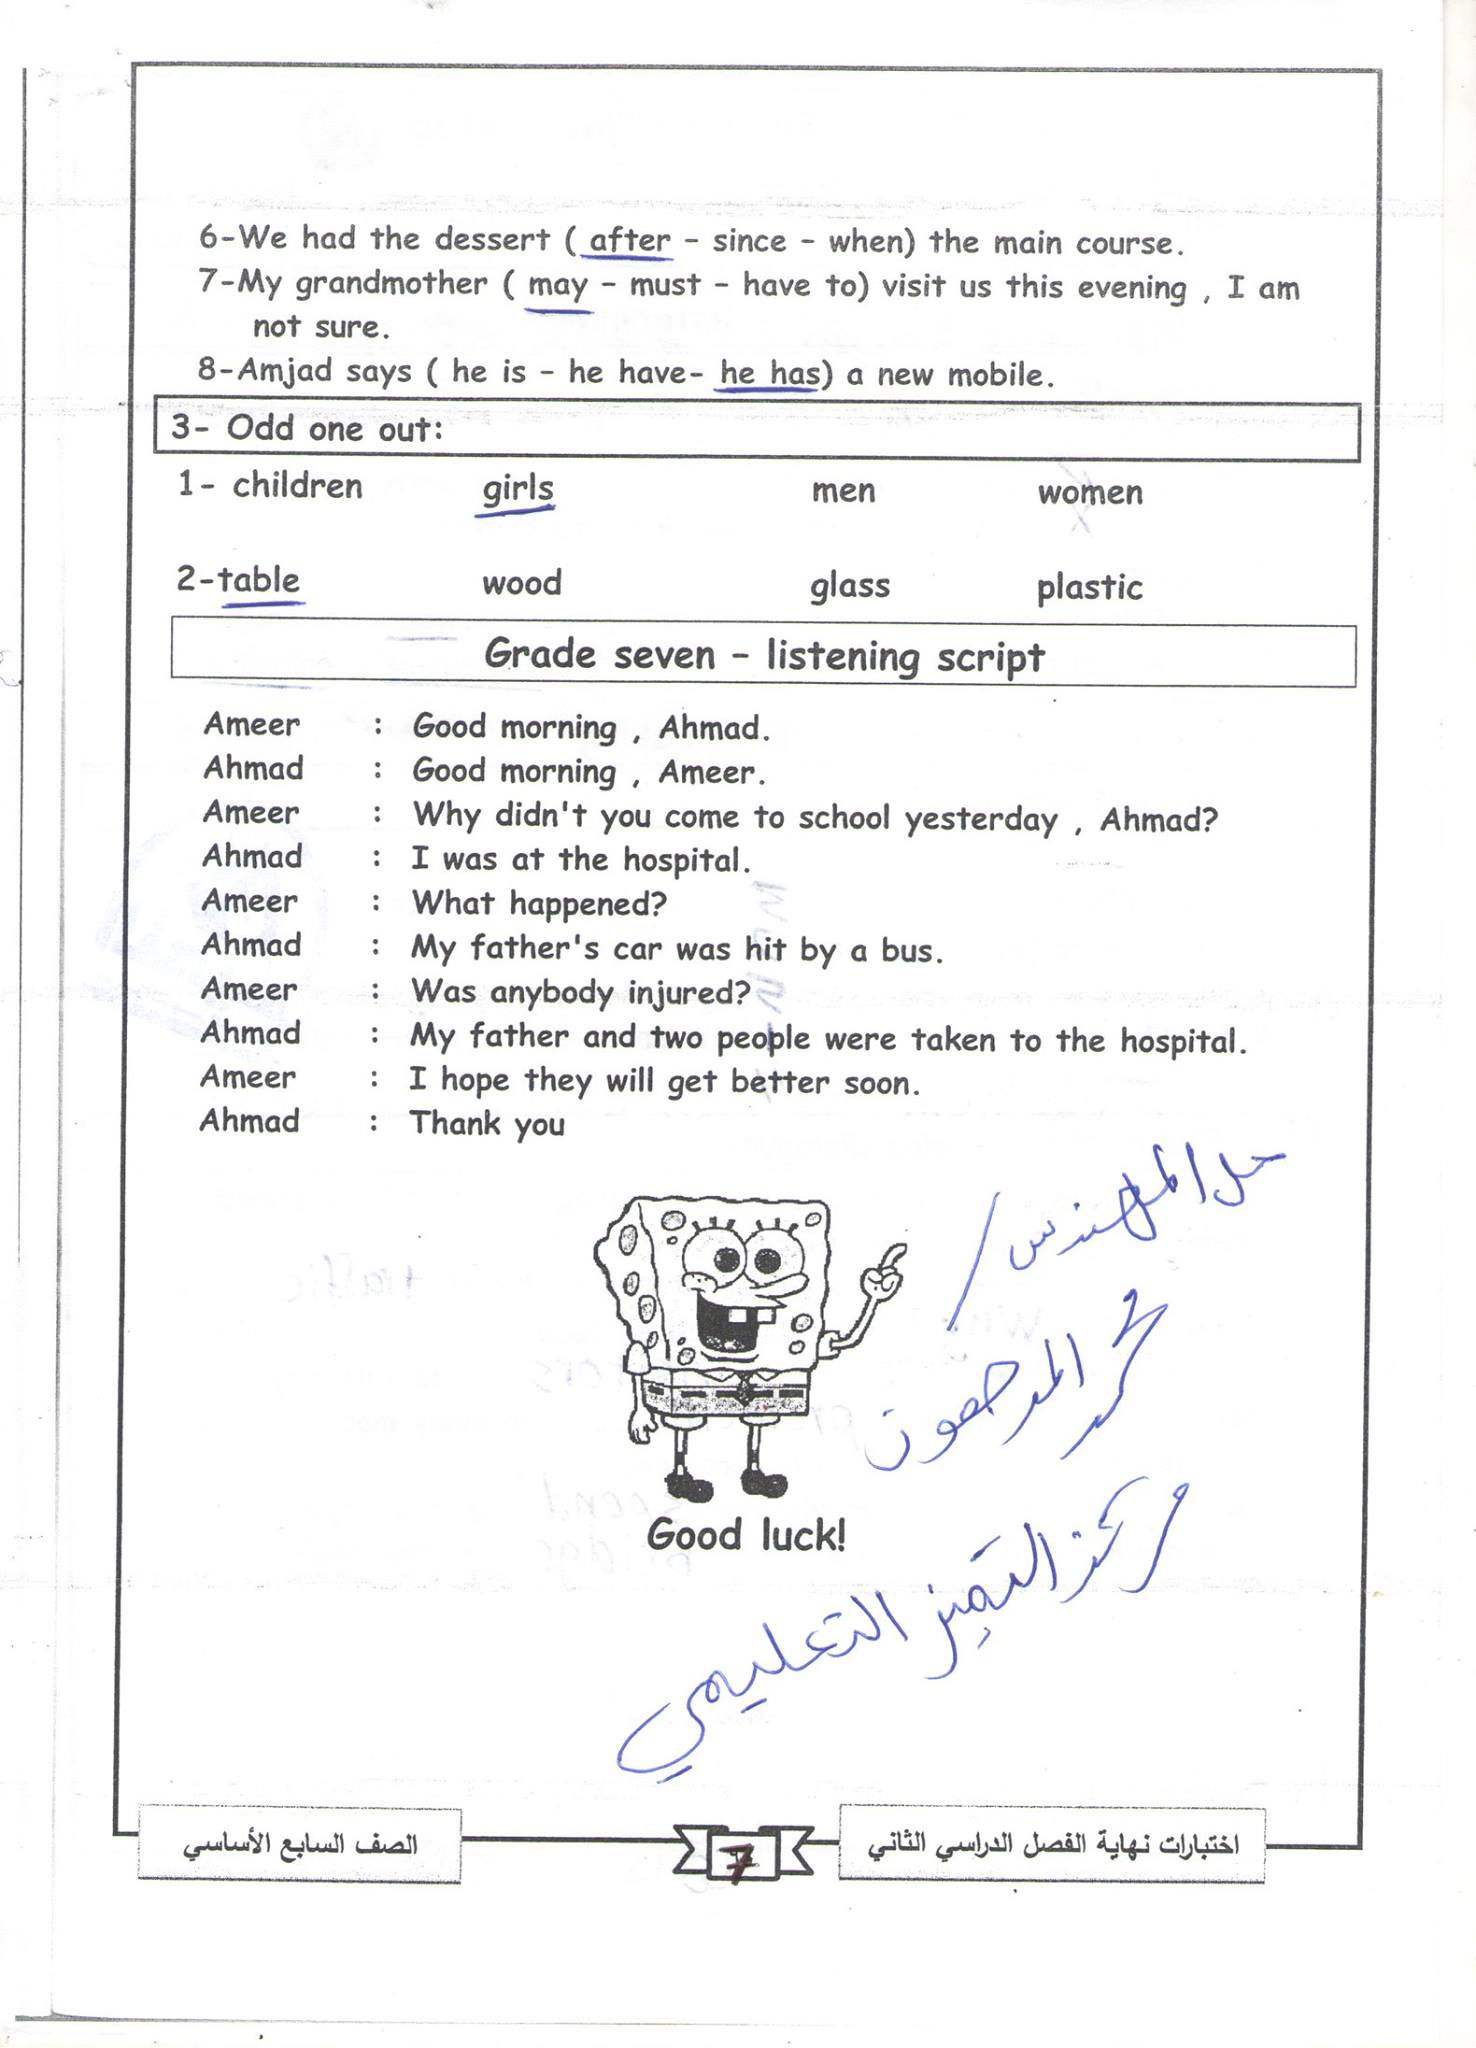 6-We had the dessert ( after - since - when) the main course.
7-My grandmother ( may - must - have to) visit us this evening , I am
not sure.
8-Amjad says ( he is - he have- he has) a new mobile.
3- Odd one out:
1- children girls men women
2-table wood glass plastic
Grade seven - listening script
Ameer : Good morning , Ahmad.
Ahmad : Good morning , Ameer.
Ameer : Why didn't you come to school yesterday , Ahmad?
Ahmad : I was at the hospital.
Ameer : What happened?
Ahmad : My father's car was hit by a bus.
Ameer : Was anybody injured?
Ahmad : My father and two people were taken to the hospital.
Ameer : I hope they will get better soon.
Ahmad : Thank you
حل المهندس /
محمد المدهون
مركز التميز التعليمي
Good luck!
اختبارات نهاية الفصل الدراسي الثاني
7
الصف السابع الأساسي